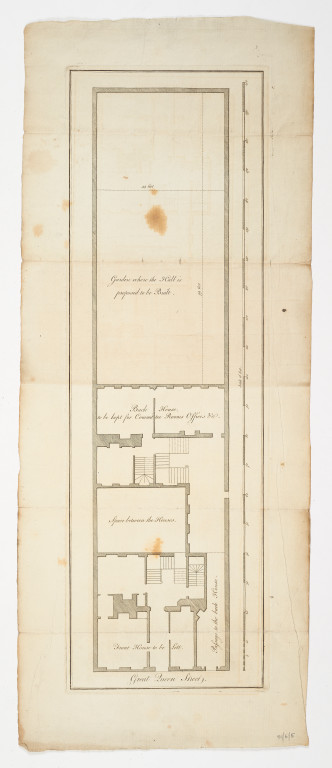 Garden where the Hall is
proposed to be Built.
Back House,
to be kept for Committee Rooms Offices &c.
Space between the Houses.
Passage to the back House.
Front House to be Lett.
Great Queen Street,